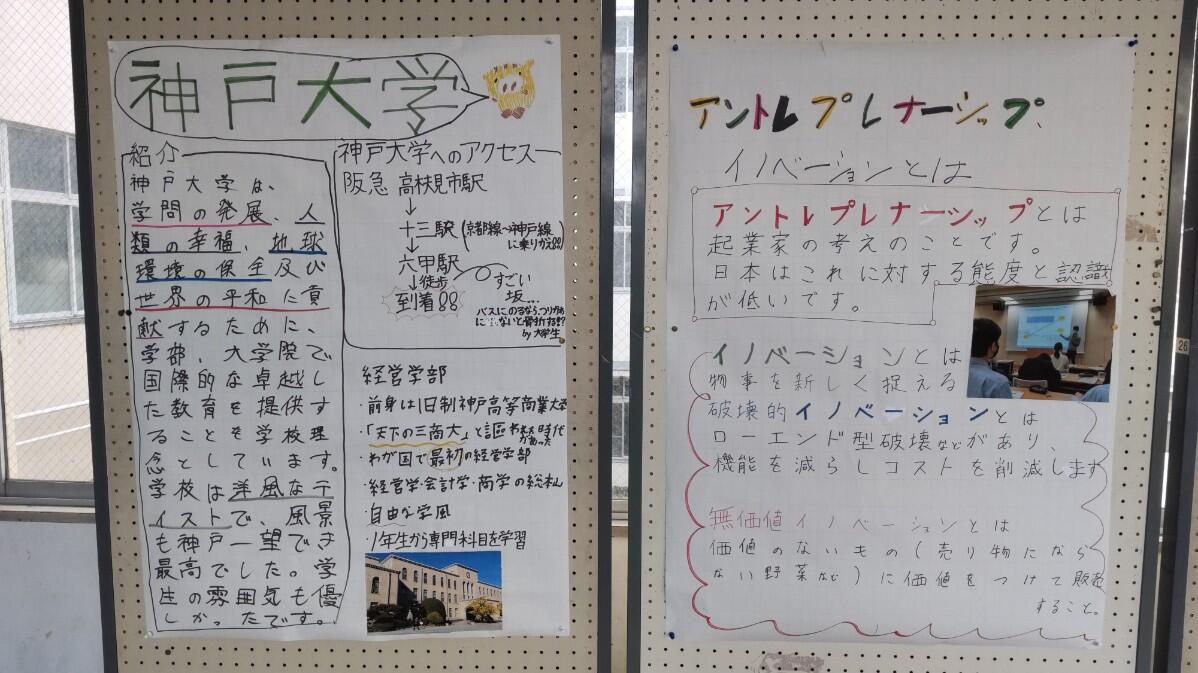 神戸大学
紹介
神戸大学は、
学問の発展、人
類の幸福、地球
環境の保全及び
世界の平和に貢
献するために、
学部、大学院で
国際的な卓越し
た教育を提供す
ることを学校理
念としています。
学校は洋風なテ
イストで、風景
も神戸一望でき
最高でした。学
生の雰囲気も優
しかったです。
神戸大学へのアクセス
阪急 高槻見市駅
↓
十三駅(京都線〜神戸線
に乗りかえ!!)
↓
六甲駅
↓徒歩
到着!!
すごい
坂...
バスにのるなら、つりかわ
にないと骨折する!?
by 大学生
経営学部
・前身は旧制神戸高等商業大学
・「天下の三商大」と謳われた時代
があった
・わが国で最初の経営学部
・経営学・会計学・商学の総称
・自由な学風
・1年生から専門科目を学習
アントレプレナーシップ、
イノベーションとは
アントレプレナーシップとは
起業家の考えのことです。
日本はこれに対する態度と認識
が低いです。
イノベーションとは
物事を新しく捉える
破壊的イノベーションとは
ローエンド型破壊などがあり、
機能を減らしコストを削減します
無価値イノベーションとは
価値のないもの(売り物になら
ない野菜など)に価値をつけて販売
すること。
26